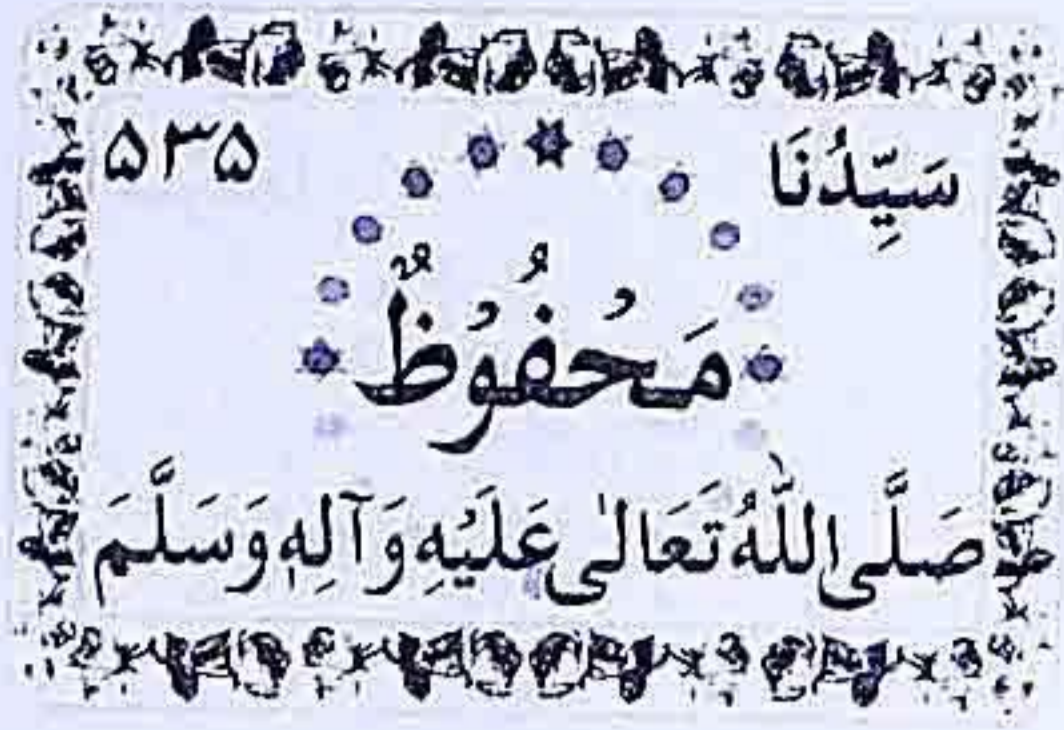 سَيِّدُنَا ۵۳۵
مَحْفُوْظٌ
صَلَّى اللّٰهُ تَعَالٰى عَلَيْهِ وَآلِهٖ وَسَلَّمَ